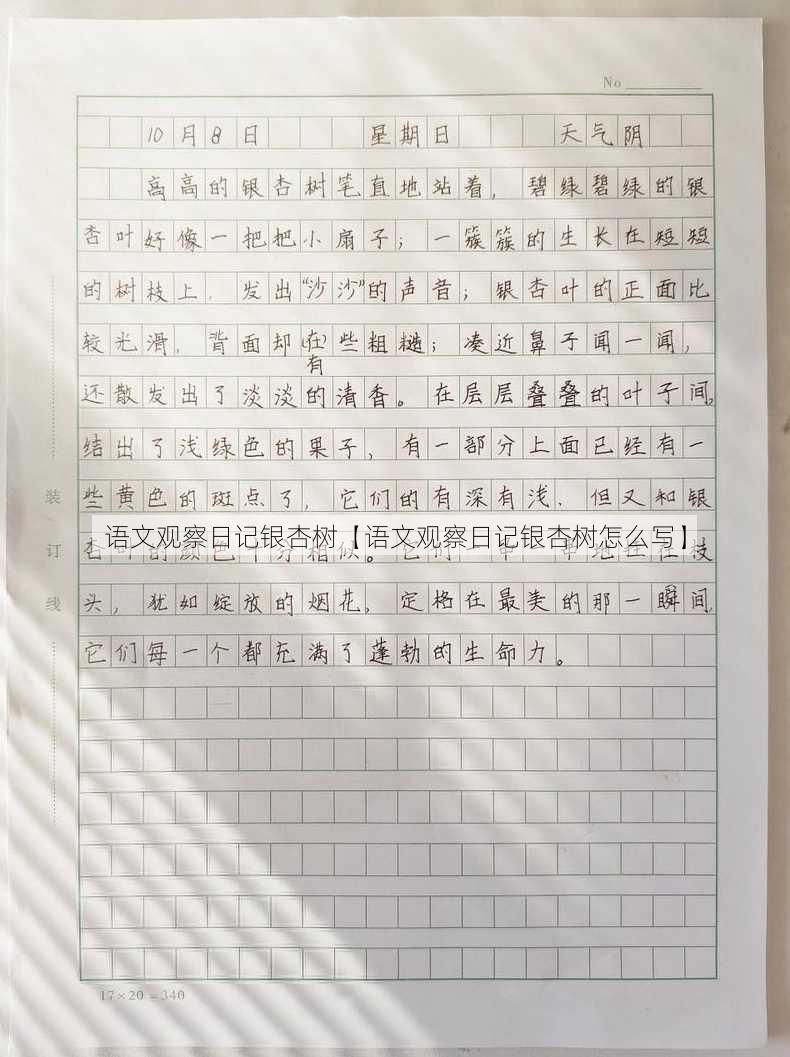 No
10月8日 星期日 天气阴
高高的银杏树笔直地站着，碧绿碧绿的银
杏叶好像一把把小扇子；一簇簇的生长在短短
的树枝上，发出“沙沙”的声音；银杏叶的正面比
较光滑，背面却(在)些粗糙；凑近鼻子闻一闻，
有
还散发出了淡淡的清香。在层层叠叠的叶子间，
结出了浅绿色的果子，有一部分上面已经有一
些黄色的斑点了，它们的有深有浅，但又和银
语文观察日记银杏树【语文观察日记银杏树怎么写】
杏叶的颜色十分相似。它们一串一串地在枝
头，犹如绽放的烟花，定格在最美的那一瞬间，
它们每一个都充满了蓬勃的生命力。
装
订
线
17×20=340